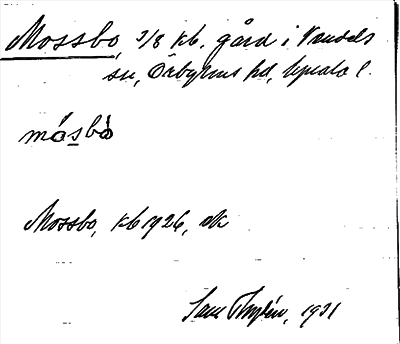 Mossbo, 3/8 kb. gård i Vendels
sn, Örbyhus hd, Upsala l.
måsbò
Mossbo, kb 1926, ek
Sam Thylén, 1931